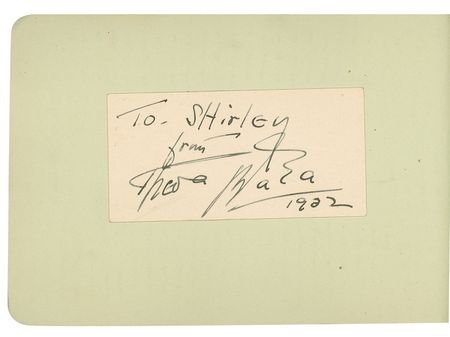 To - SHirlEy
from
Theda Bara
1932